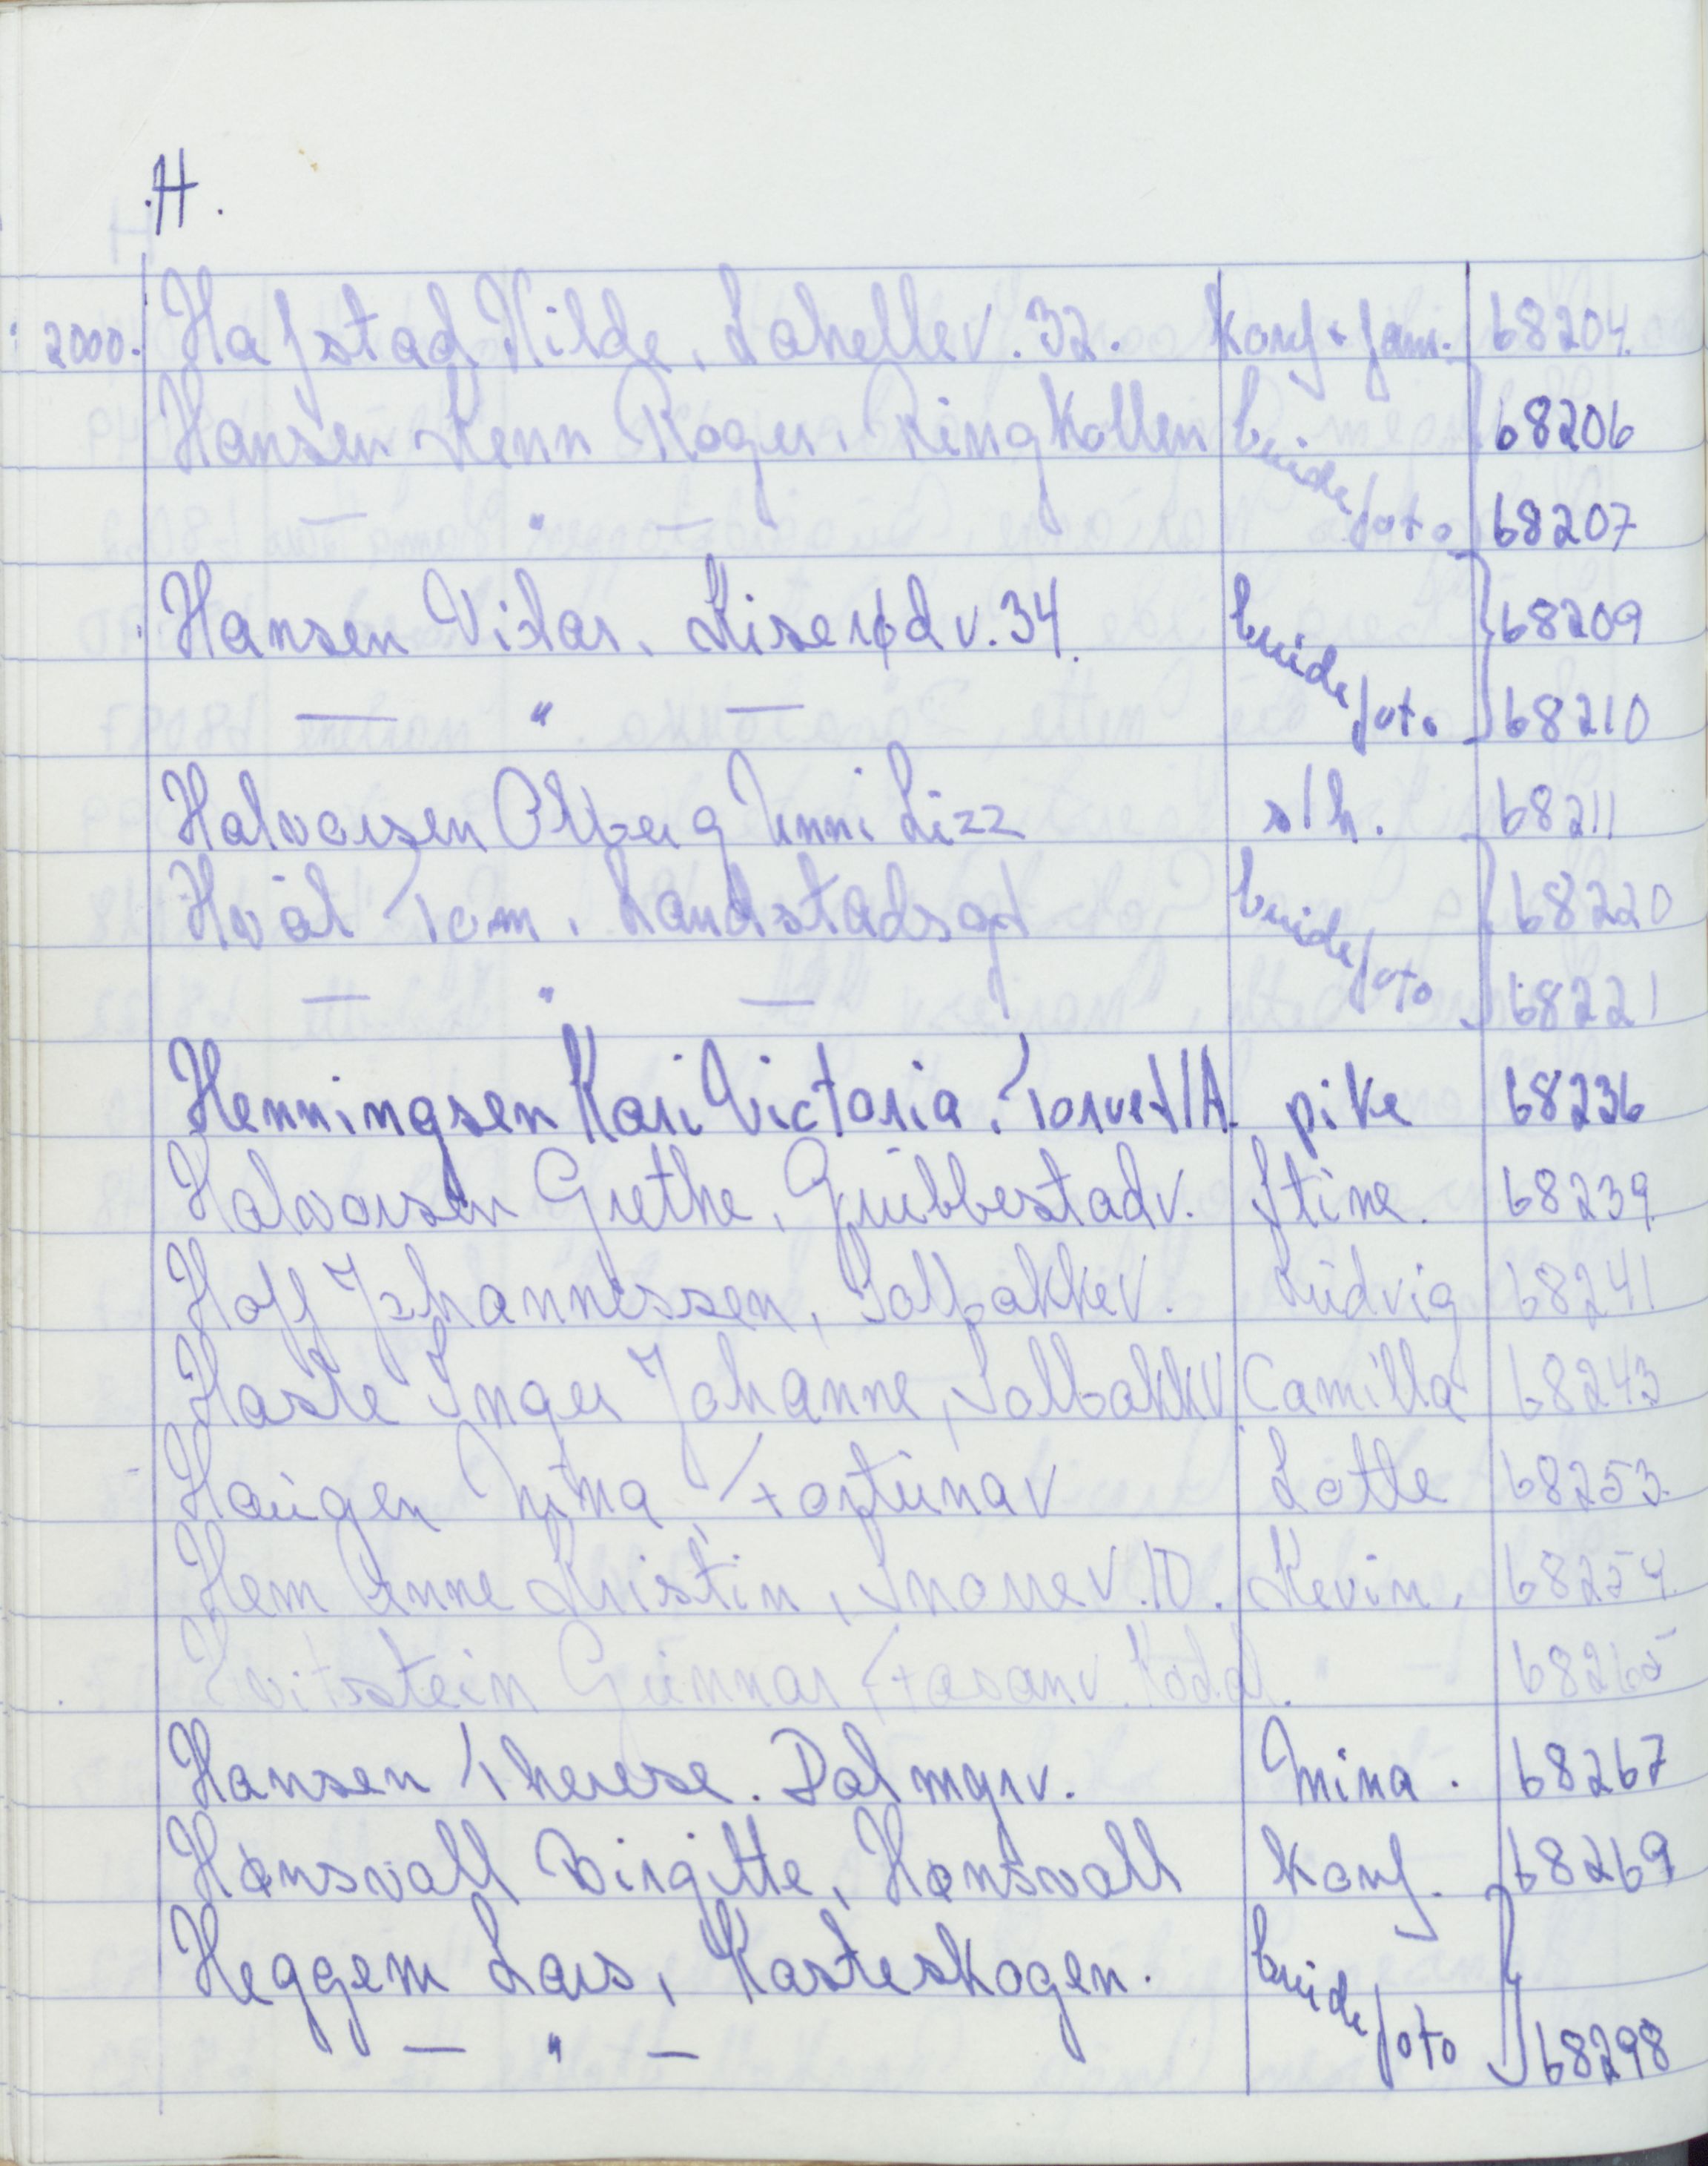 H.
2000. Hafstad Hilde, Lahellev. 32. konf + fam. 68204.
Hansen Kenn Roger, Ringkollen brude 68206
— " — foto 68207
Hansen Vidar, Kiserød v. 34. brude 68209
— " — foto 68210
Halvorsen Olberg Unni Lizz s/h. 68211
Hvål Tom, Landstadsgt brude 68220
— " — foto 68221
Henningsen Kari Victoria, Torvet 1A pike 68236
Halvorsen Grethe, Grübbestadv. Stine. 68239
Hoff Johannessen, Solbakkev. Lüdvig 68241
Haste Inger Johanne, Solbakkv Camilla 68243
Haügen Nina, Fortünav Lotte 68253.
Hem Anne Kristin, Snorrev. 10. Kevin, 68254.
Hvitstein Günnar Fasanv. 68265
Hansen Therese. Dalmgrv. Nina. 68267
Hønsvall Birgitte, Hønsvall konf. 68269
Heggem Lars, Kasteskogen. brude
— " — foto 68298